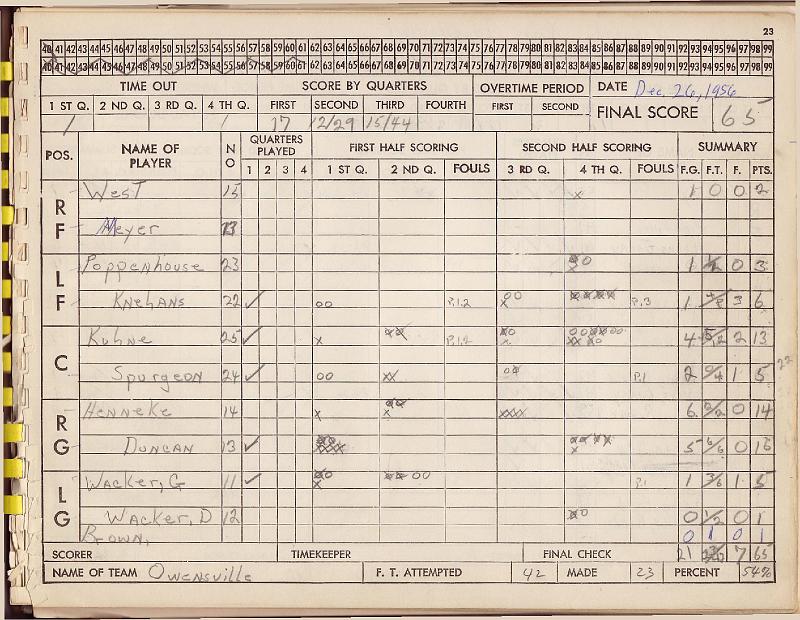 23
40 41 42 43 44 45 46 47 48 49 50 51 52 53 54 55 56 57 58 59 60 61 62 63 64 65 66 67 68 69 70 71 72 73 74 75 76 77 78 79 80 81 82 83 84 85 86 87 88 89 90 91 92 93 94 95 96 97 98 99
40 41 42 43 44 45 46 47 48 49 50 51 52 53 54 55 56 57 58 59 60 61 62 63 64 65 66 67 68 69 70 71 72 73 74 75 76 77 78 79 80 81 82 83 84 85 86 87 88 89 90 91 92 93 94 95 96 97 98 99
TIME OUT SCORE BY QUARTERS OVERTIME PERIOD DATE Dec. 26, 1956
1 ST Q. 2 ND Q. 3 RD Q. 4 TH Q. FIRST SECOND THIRD FOURTH FIRST SECOND FINAL SCORE 65
/ / 17 12/29 15/44
POS. NAME OF PLAYER NO QUARTERS PLAYED FIRST HALF SCORING SECOND HALF SCORING SUMMARY
1 2 3 4 1 ST Q. 2 ND Q. FOULS 3 RD Q. 4 TH Q. FOULS F.G. F.T. F. PTS.
RF West 15 x 1 0 0 2
Meyer 13
LF Poppenhouse 23 1 0 3
Knehans 22 ✓ oo P.1.2 P.3 1 3 6
C Kuhne 25 ✓ x P.1.2 4 2 13
Spurgeon 24 ✓ oo xx P.1 2 1 5
22
RG Henneke 14 x xxx 6 0 14
Duncan 13 ✓ 5 6/6 0 16
LG Wacker, G 11 ✓ P.1 1 3/6 1 5
Wacker, D 12 0 1/2 0 1
Brown, 0 1 0 1
SCORER TIMEKEEPER FINAL CHECK 21 7 65
NAME OF TEAM Owensville F. T. ATTEMPTED 42 MADE 23 PERCENT 54%